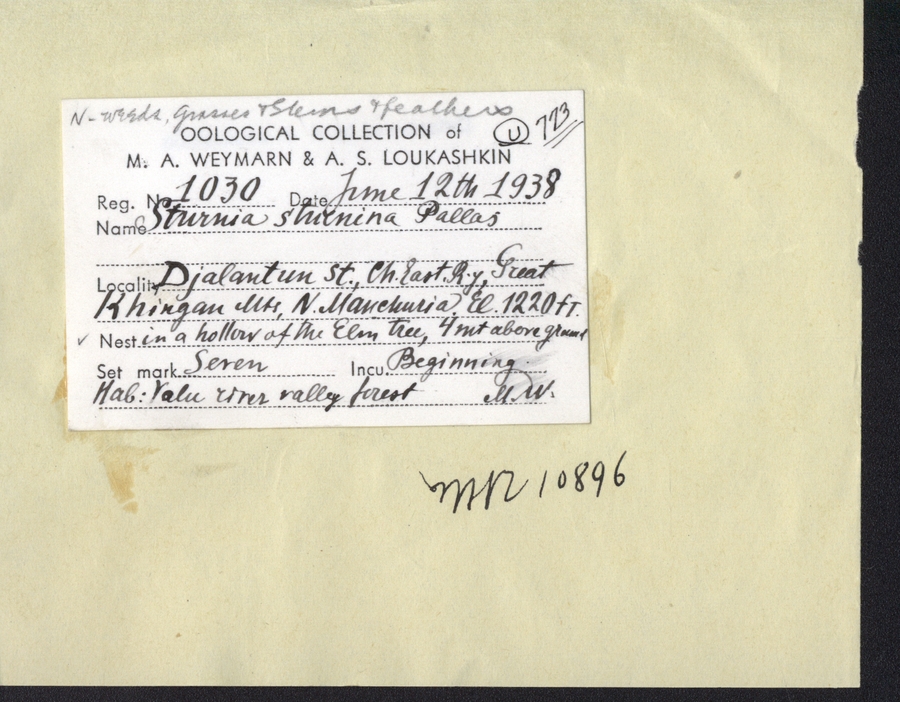 N - weeds, grasses & Stems & feathers
OOLOGICAL COLLECTION of (U) 773
M. A. WEYMARN & A. S. LOUKASHKIN
Reg. No 1030 Date June 12th 1938
Name Sturnia sturnina Pallas
Locality Djalantun St., Ch. East. Ry, Great
Khingan Mts, N. Manchuria, El. 1220 ft.
✓ Nest. in a hollow of the Elm tree, 4 mt above ground
Set mark. Seven Incu. Beginning.
Hab: Yalu river valley forest M.W.
10896